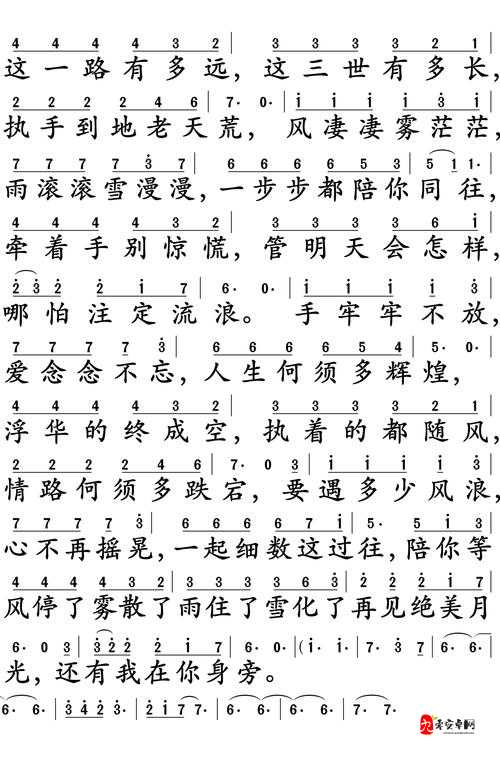 4 4 4 4 3 2 | 3 3 3 3 2 1 |
这一路有多远,这三世有多长,
2 2 2 2 4 6 | 7· 0· | i i i i 3 i |
执手到地老天荒, 风凄凄雾茫茫,
7 7 7 7 3 7 | 6 6 6 6 5 3 | 5 1 1· |
雨滚滚雪漫漫,一步步都陪你同往,
4 4 4 4 3 2 | 3 3 3 3 6 i |
牵着手别惊慌,管明天会怎样,
2 3 2 2 i 7 | 6· 0· | i i i i i 3 |
哪怕注定流浪。 手牢牢不放,
7 7 7 7 3 | 6 6 6 6 5 4 | 5· 0· |
爱念念不忘,人生何须多辉煌,
4 4 4 4 3 2 | 3 3 3 3 2 1 |
浮华的终成空,执着的都随风,
2 2 2 2 4 6 | 7· 0 3 | i i i i 3 |
情路何须多跌宕,要遇多少风浪,
7 7 7 7 3 | 6 6 6 6 7 i | 5· 5 i 3 |
心不再摇晃,一起细数这过往,陪你等
4 4 4 4 3 | 3 3 3 3 2 | 2 2 2 i 7 |
风停了雾散了雨住了雪化了再见绝美月
6· 0 3 | 3 2 2 2 i | 6· 0· | (i· i· | 7· 3 7 | 6· 6· |
光,还有我在你身旁。
6· 6· | 3 4 2 3· | 2 i 7 7· | 6· 6· | 6· 6· | 7· 7· |